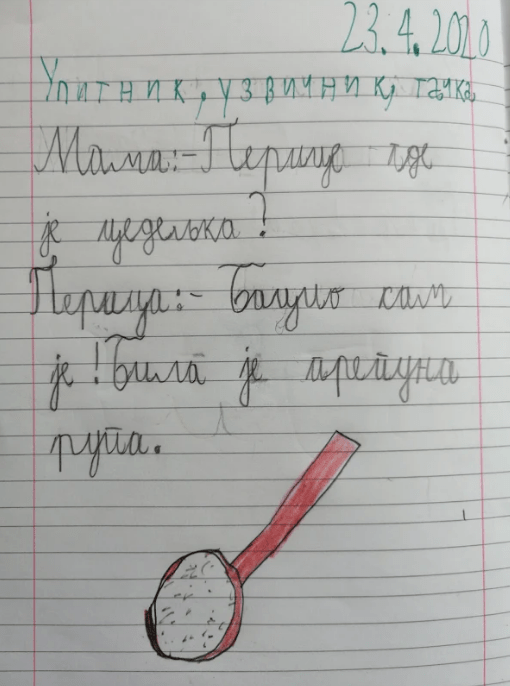 23.4.2020
Упитник, узвичник, тачка
Мама:-Перице где
је цедељка?
Перица:- Бацио сам
је! Била је препуна
рупа.